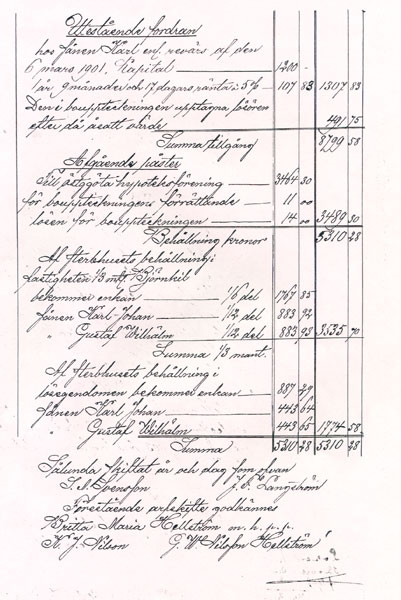 Utestående fordran
hos sonen Karl enl. revers af den
6 mars 1901. Kapital — 1200 –
1 år 9 månader och 17 dagars ränta i 5% — 107 83 1307 83
Den i bouppteckningen upptagna lösören
efter då åsatt värde — 491 75
Summa tillgång 8799 58
Afgående poster
Till östgöta hypoteksförening — 3464 30
för bouppteckningens förrättande 11 00
lösen för bouppteckningen — 14 00 3489 30
Behållning kronor 5310 28
Af sterbhusets behållning i
fastigheten 1/3 mtl. Björnhil
bekommer enkan — 1/6 del 1767 85
sonen Karl Johan — 1/12 del 883 92
" Gustaf Wilhälm 1/12 del 883 93 3535 70
Summa 1/3 mant.
Af sterbhusets behållning i
lösegendomen bekommer enkan — 887 29
sonen Karl Johan — 443 64
" Gustaf Wilhälm — 443 65 1774 58
Summa 5310 28 5310 28
Sålunda skiftat år och dag som ofvan
Svensson J. E. Langström
Förestående arfskifte godkännes
Britta Maria Hellström m. h. p. p.
K. J. Nilson G. W. Nilsson Hellström